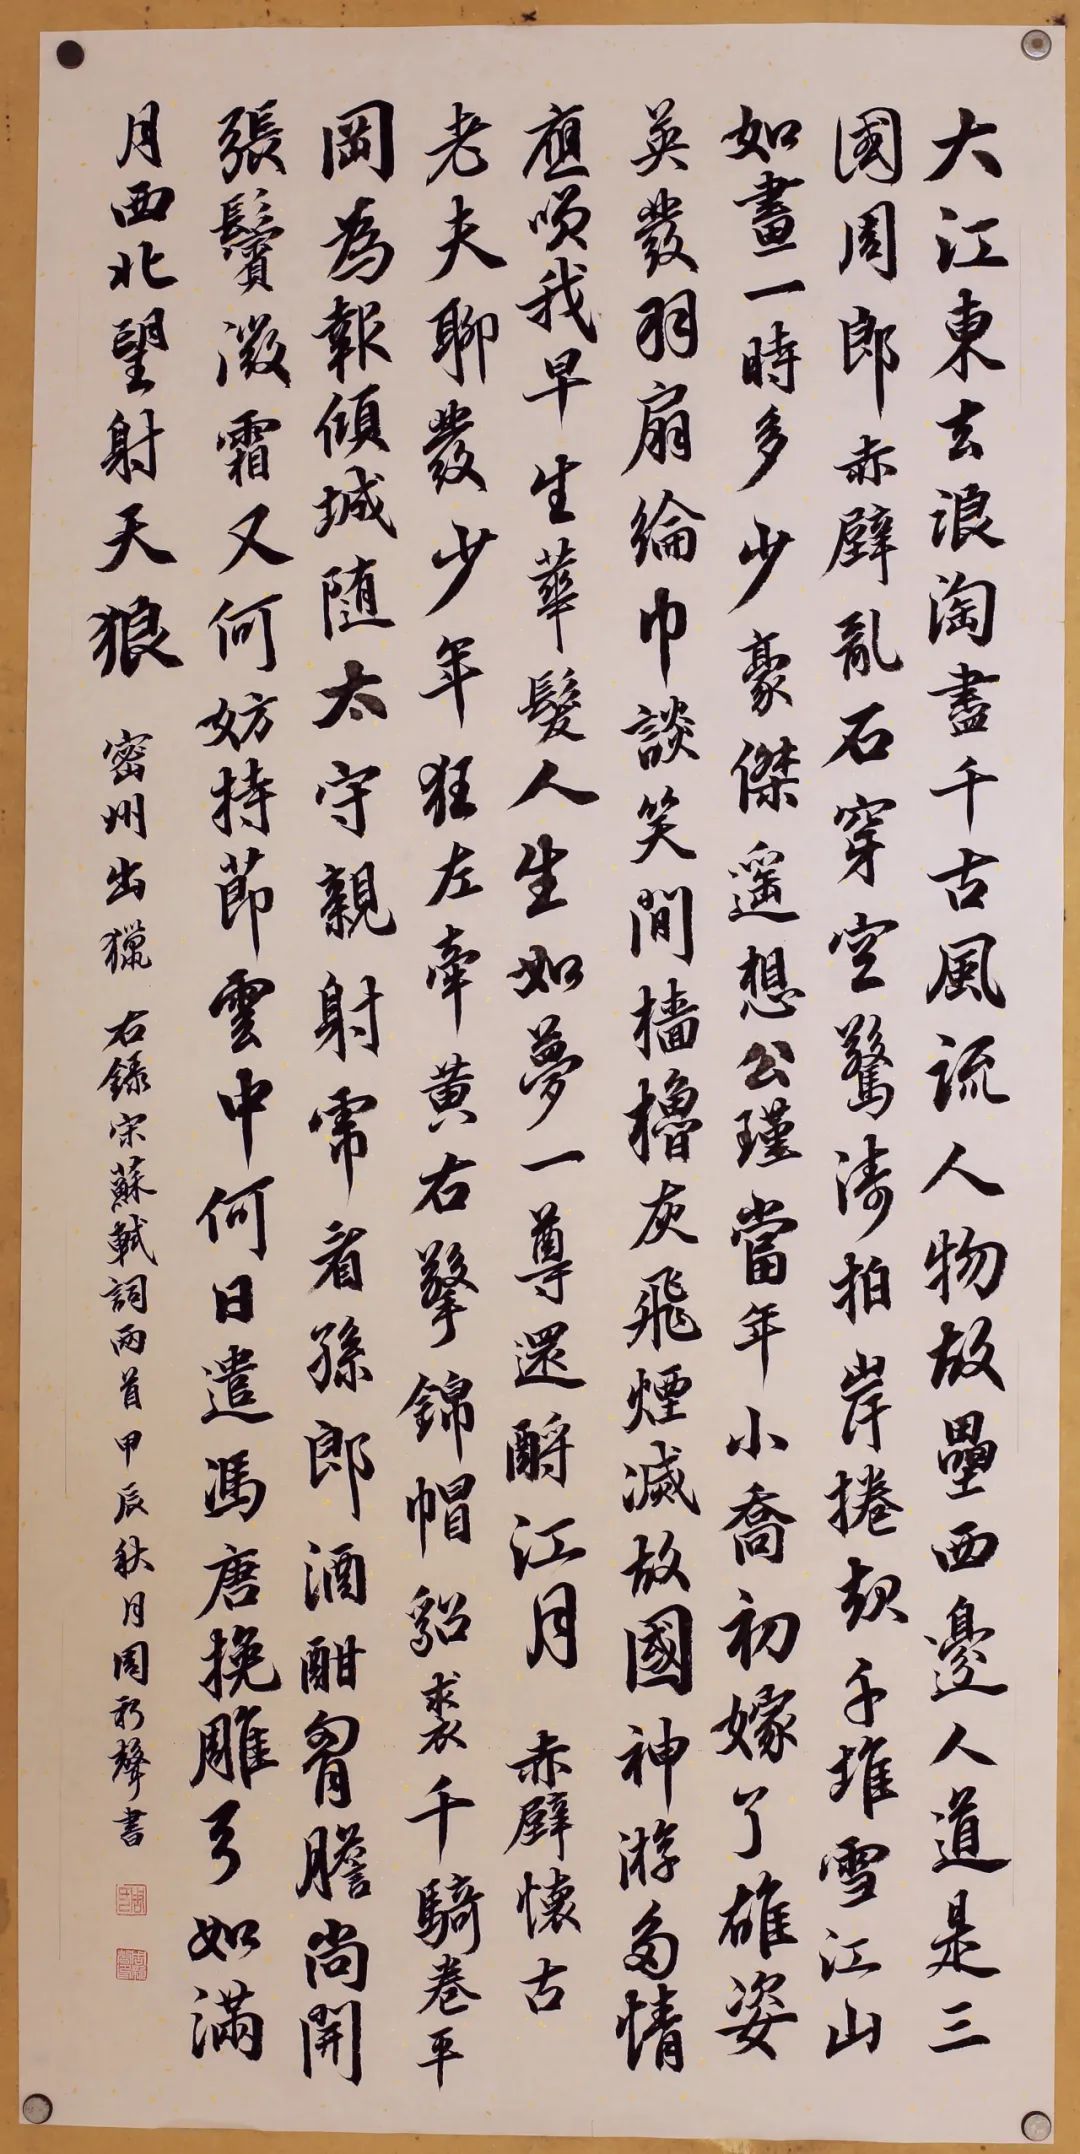 大江東去浪淘盡千古風流人物故壘西邊人道是三
國周郎赤壁亂石穿空驚濤拍岸捲起千堆雪江山
如畫一時多少豪傑遥想公瑾當年小喬初嫁了雄姿
英發羽扇綸巾談笑間檣櫓灰飛煙滅故國神游多情
應咲我早生華髮人生如夢一尊還酹江月 赤壁懷古
老夫聊發少年狂左牽黄右擎錦帽貂裘千騎卷平
岡為報傾城随太守親射虎看孫郎酒酣胷膽尚開
張鬢微霜又何妨持節雲中何日遣馮唐挽雕弓如滿
月西北望射天狼 密州出獵 右錄宋蘇軾詞兩首甲辰秋月周聲書